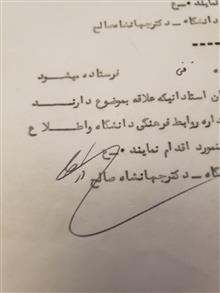 نمایند
دانشگاه – دکترجهانشاه صالح
فنی فرستاده میشود
ان استادانیکه علاقه بموضوع دارند
داره روابط فرهنگی دانشگاه واطلاع
نمورد اقدام نمایند
گاه – دکترجهانشاه صالح